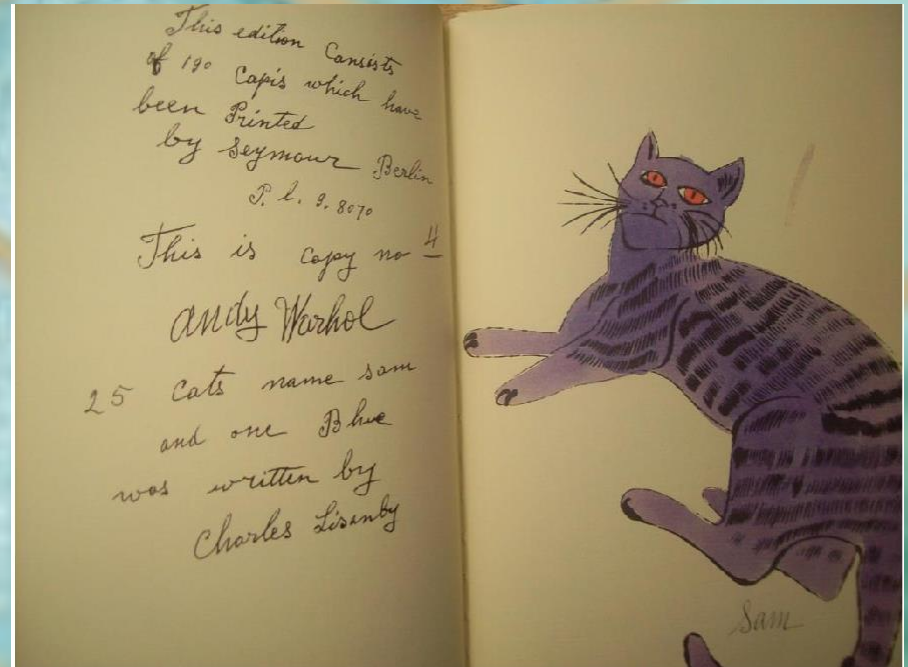 This edition Consists
of 190 Capis which have
been Printed
by Seymour Berlin
P. l. 9. 8070
This is copy no 4
Andy Warhol
25 Cats name sam
and one Blue
was written by
Charles Lisanby
Sam